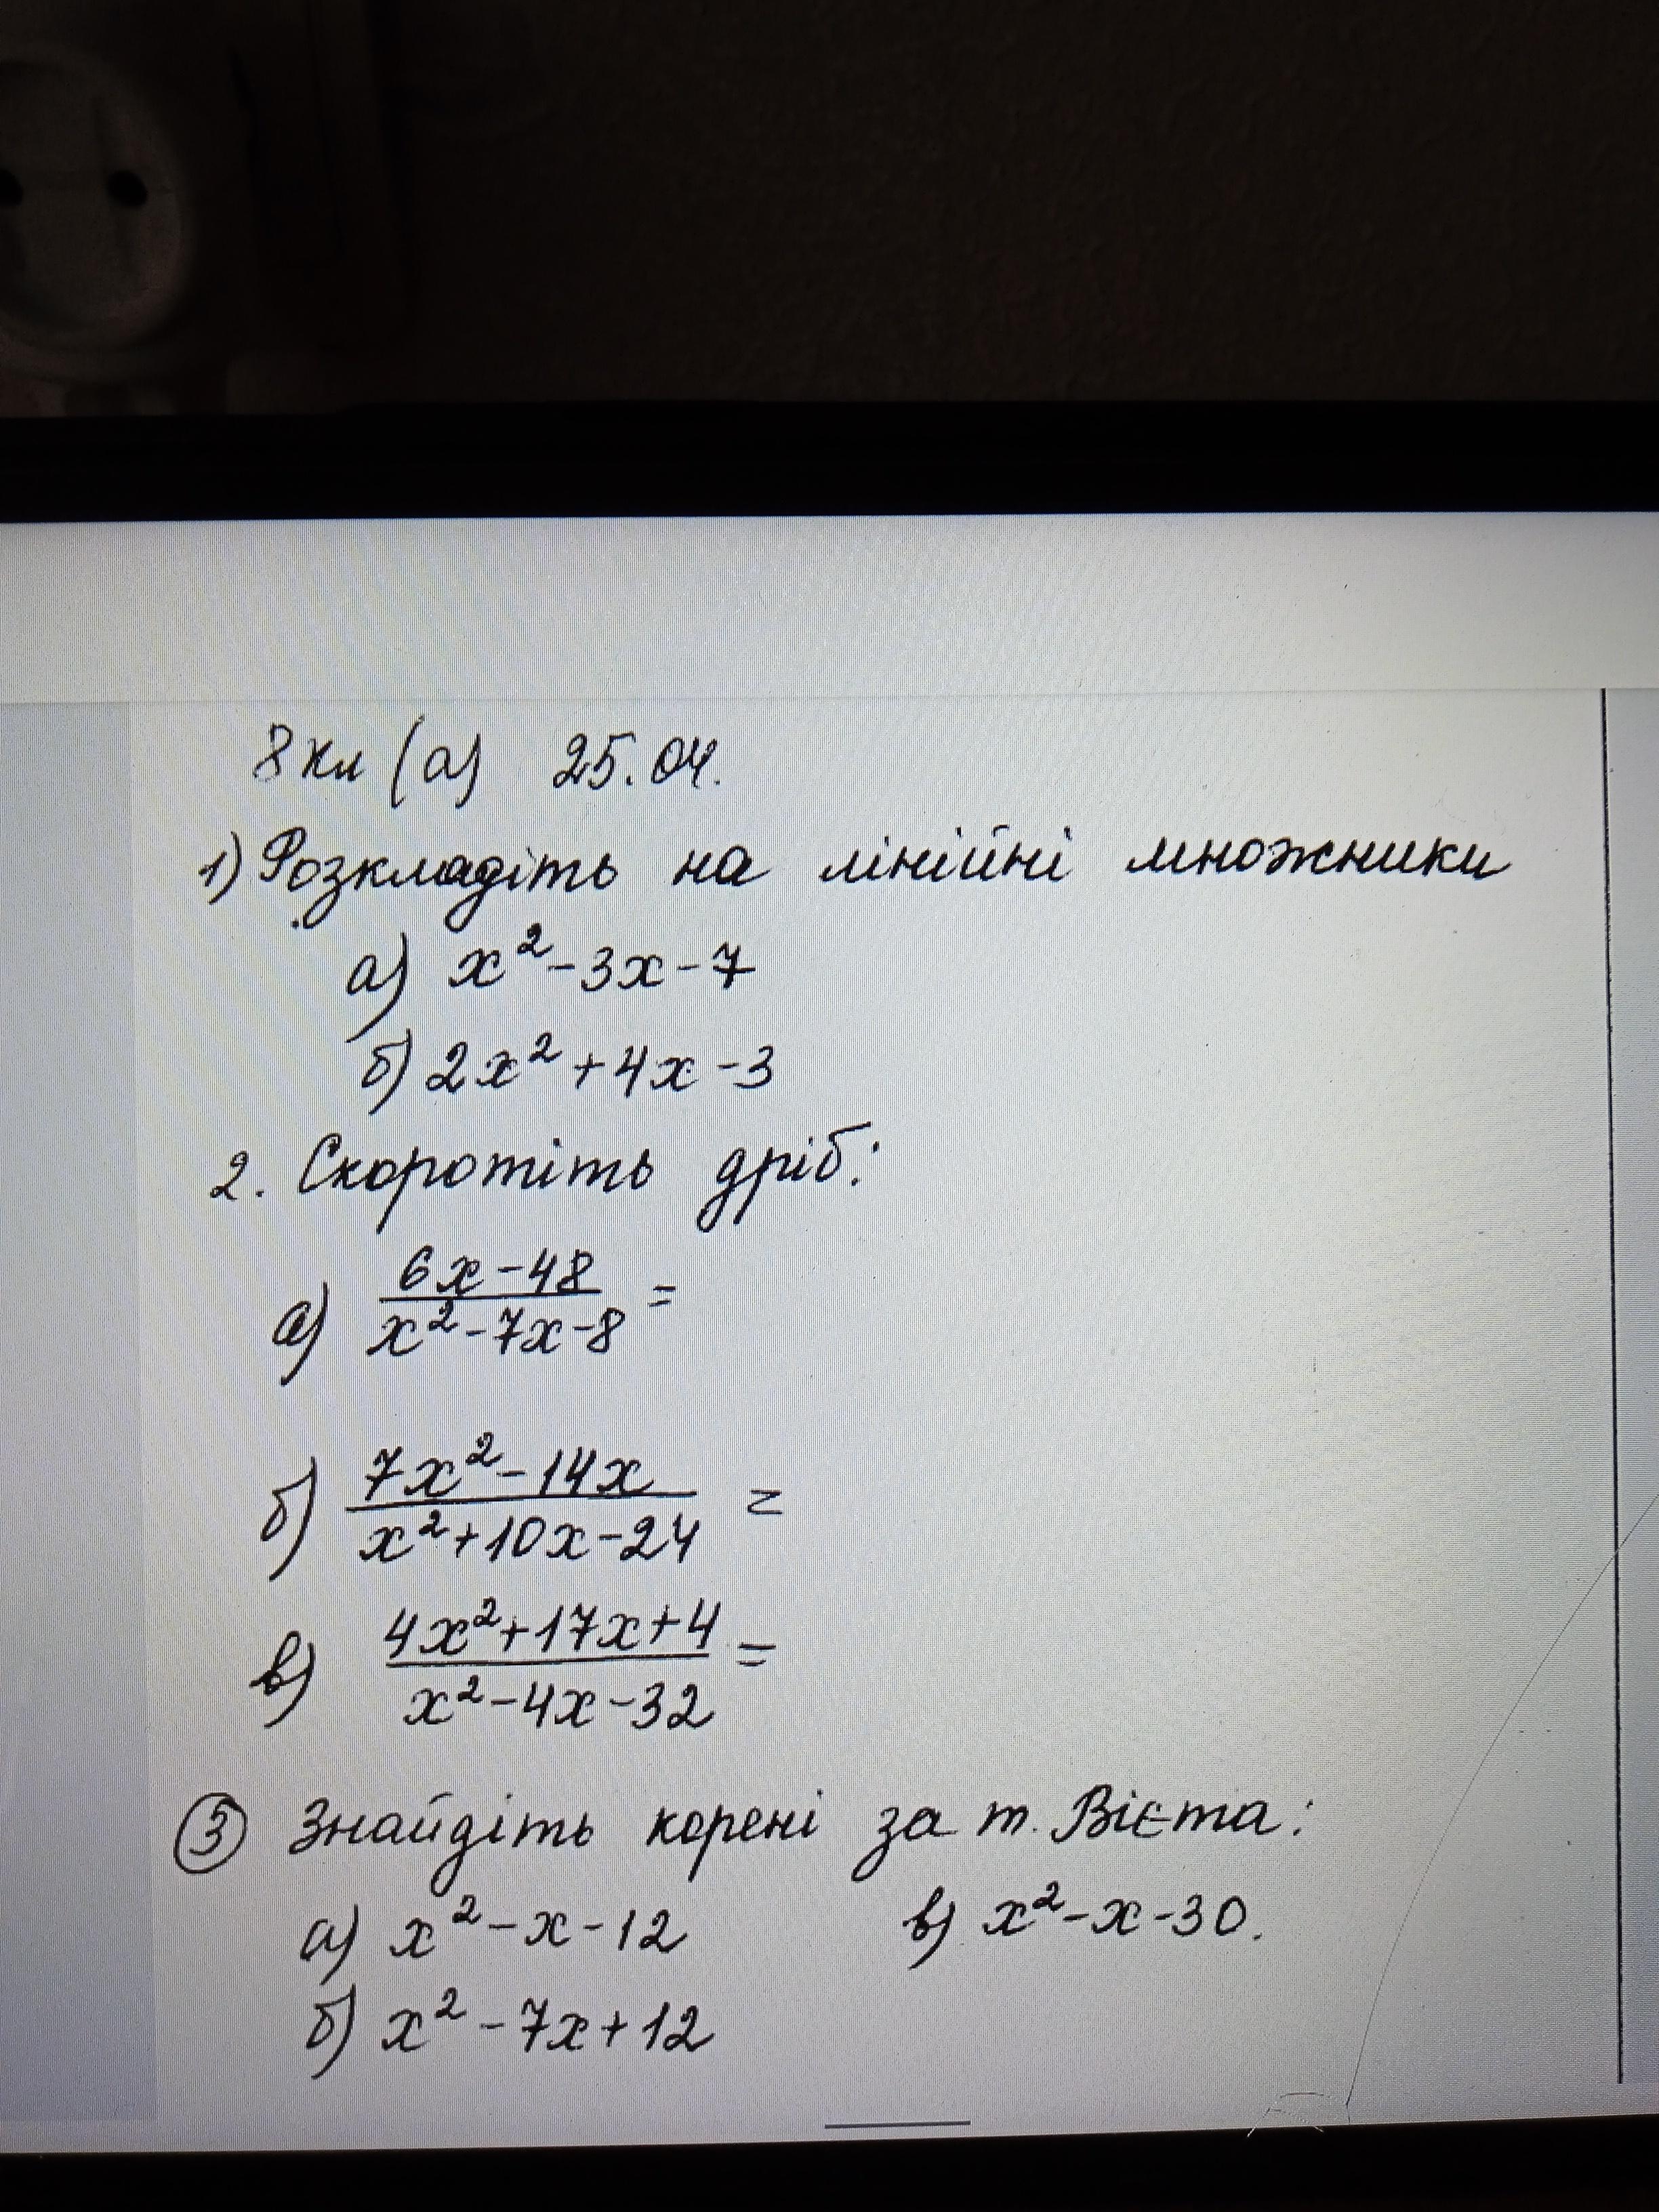 8 кл (а) 25.04.
1) Розкладіть на лінійні множники
а) x² - 3x - 7
б) 2x² + 4x - 3
2. Скоротіть дріб:
а) (6x - 48)/(x² - 7x - 8) =
б) (7x² - 14x)/(x² + 10x - 24) =
в) (4x² + 17x + 4)/(x² - 4x - 32) =
③ Знайдіть корені за т. Вієта:
а) x² - x - 12 в) x² - x - 30.
б) x² - 7x + 12